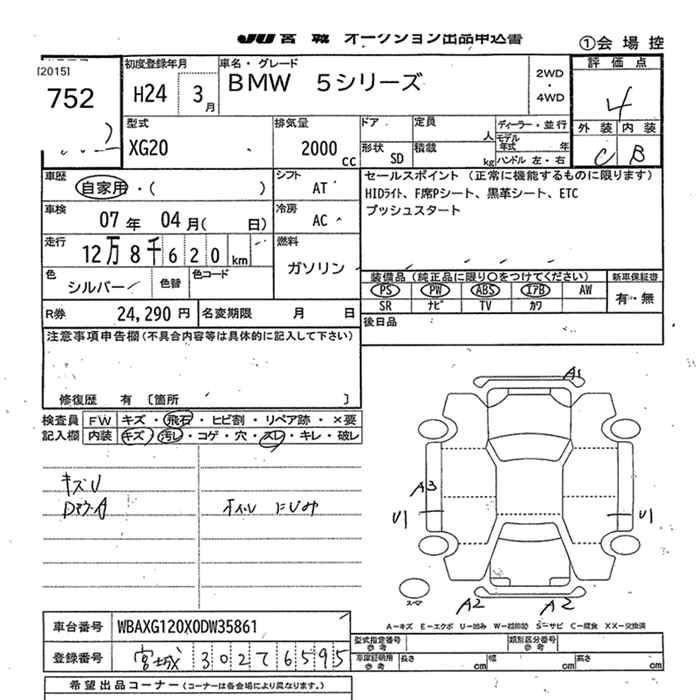 JU 宮 城 オークション出品申込書
①会 場 控
[2015]
752
初度登録年月
H24 3月
車名・グレード
BMW 5シリーズ
2WD
・
4WD
評 価 点
4
外 装 内 装
C B
型式
XG20
排気量
2000 cc
ドア
定員 人
ディーラー・並行
モデル年式 年
形状 SD
積載 kg
ハンドル 左・右
車歴
自家用・( )
シフト
AT
車検
07年 04月( 日)
冷房
AC
走行
12万8千620km
燃料
ガソリン
色
シルバー
色替
色コード
セールスポイント (正常に機能するものに限ります)
HIDライト、F席Pシート、黒革シート、ETC
プッシュスタート
装備品(純正品に限り〇をつけてください)
新車保証書
PS PW ABS エアB AW
SR ナビ TV カワ
有・無
R券 24,290 円
名変期限 月 日
後日品
注意事項申告欄(不具合内容等は具体的に記入して下さい)
修復歴 有 〔箇所 〕
検査員
記入欄
FW キズ・飛石・ヒビ割・リペア跡・×要
内装 キズ・汚レ・コゲ・穴・スレ・キレ・破レ
キズU
ホイル にじみ
A1
A3
U1
U1
A2
A2
スペア
A-キズ E-エクボ U-凹み W-補修跡 S-サビ C-腐食 XX-交換済
車台番号 WBAXG120X0DW35861
登録番号 宮城 302 も 6595
型式指定番号
参考
類別区分番号
参考
車庫証明用
参考
長さ cm
幅 cm
高さ cm
希望出品コーナー(コーナーは各会場により異なります。)